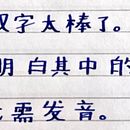 汉字太棒了。
明白其中的
需发音。